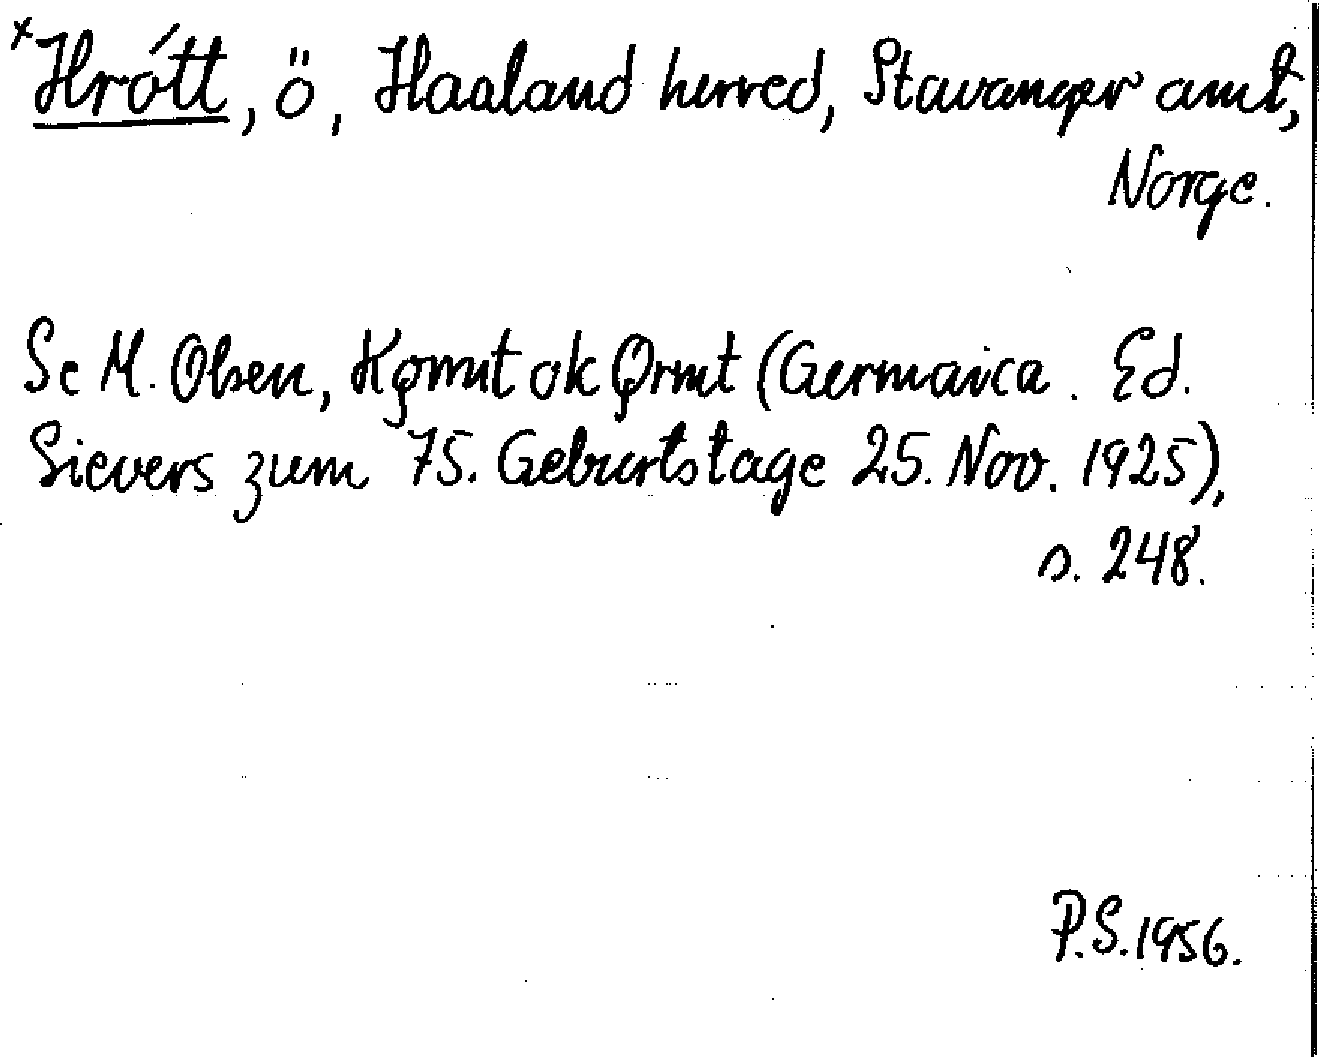 ×Hrótt, ö, Haaland herred, Stavanger amt,
Norge.
Se M. Olsen, Kǫrmt ok Ǫrmt (Germanica. Ed.
Sievers zum 75. Geburtstage 25. Nov. 1925),
s. 248.
P.S. 1956.